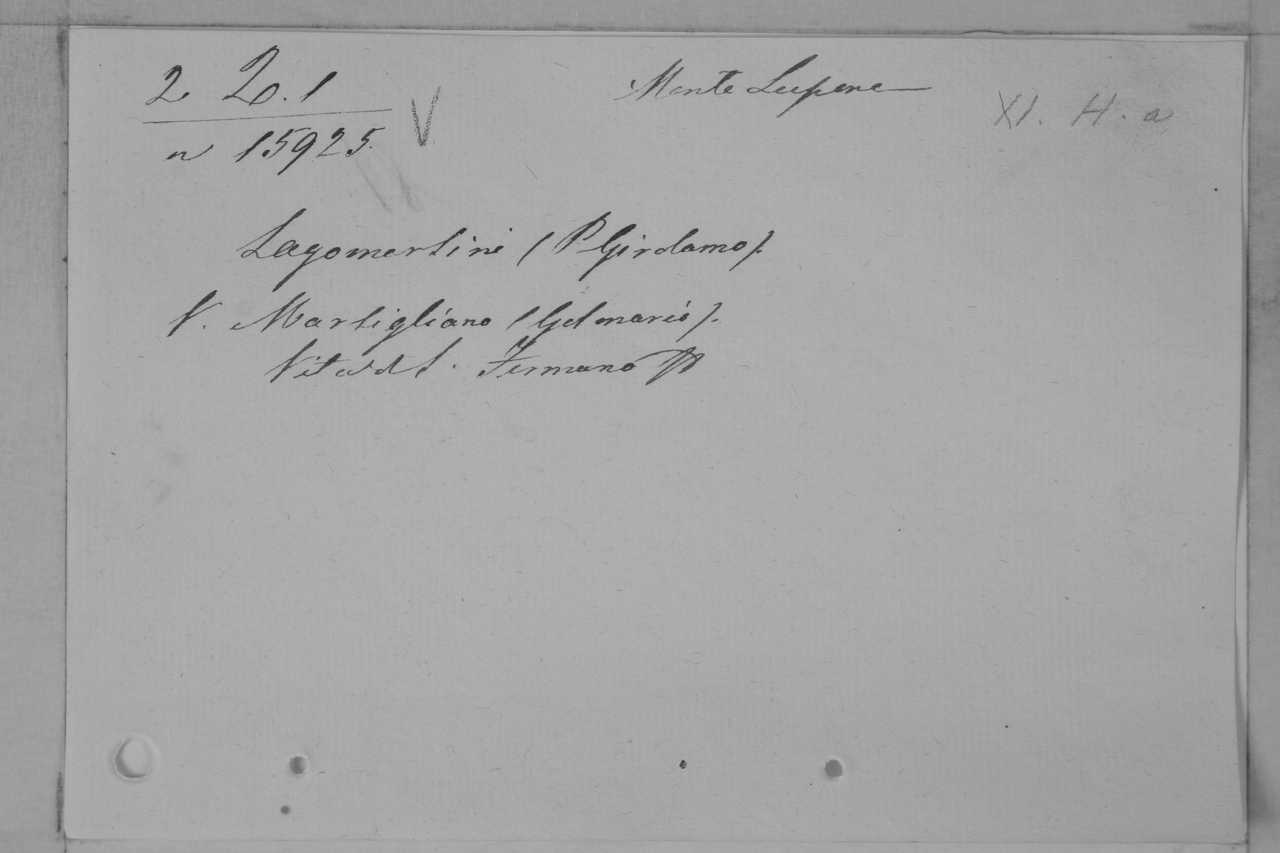 2 2. 1
n 15925.
V
Monte Lupone
XI. H. a
Lagomarsini (P Girolamo).
V. Martigliano (Gelmario).
Vita di S. Firmano